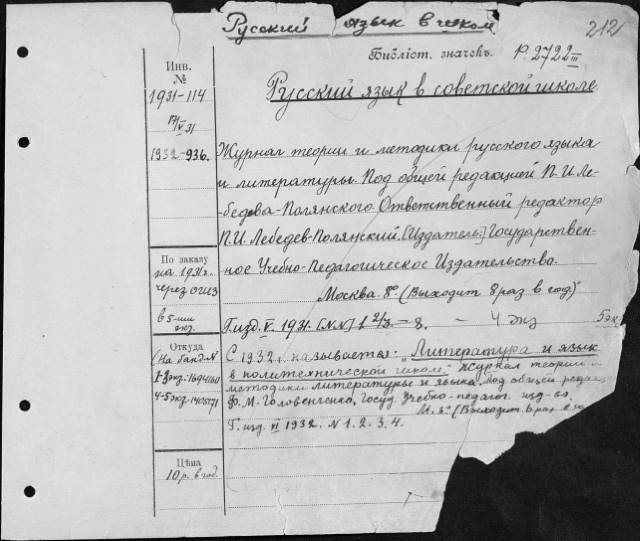 Русский язык в школ
212
Библіот. значекъ. Р. 2722 III
Русский язык в советской школе.
Инв.
№
1931-114
17/V 31
1932-936.
Журнал теории и методики русского языка
и литературы. Под общей редакцией П. И. Ле-
бедева-Полянского Ответственный редактор
П. И. Лебедев-Полянский. [Издатель:] Государствен-
ное Учебно-Педагогическое Издательство.
Москва. 8°. (Выходит 8 раз в год)
По заказу
на 1931 г.
через ОГИЗ
в 5-ти
экз.
Г. изд. V. 1931. [NN] 1 2/3 – 8. – 4 экз 5 экз
Откуда
(На банд. N
1-3 экз: 1694160
4-5 экз. 1406171
С 1932 г. называется: "Литература и язык
в политехнической школе." Журнал теории и
методики литературы и языка. Под общей редак
Ф. М. Головенченко, Госуд. Учебно-педагог. изд-во.
М. 8° (Выходит 6 раз в
Г. изд. VI 1932. N 1. 2. 3. 4.
Цѣна
10 р. в год.